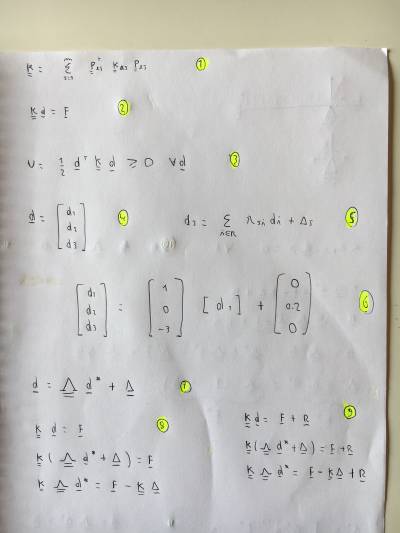 K = Σ_{s=1}^{m} P_{es}^T K_{es} P_{es} ①
K d = F ②
U = 1/2 d^T K d ≥ 0 ∀d ③
d = [d1 d2 d3] ④ ds = Σ_{i∈R} di + Δs ⑤
[d1 d2 d3] = [1 0 -3] [d1] + [0 0.2 0] ⑥
d = Λ d* + Δ ⑦
K d = F ⑧
K (Λ d* + Δ) = F
K Λ d* = F - K Δ
K d = F + R ⑨
K (Λ d* + Δ) = F + R
K Λ d* = F - K Δ + R